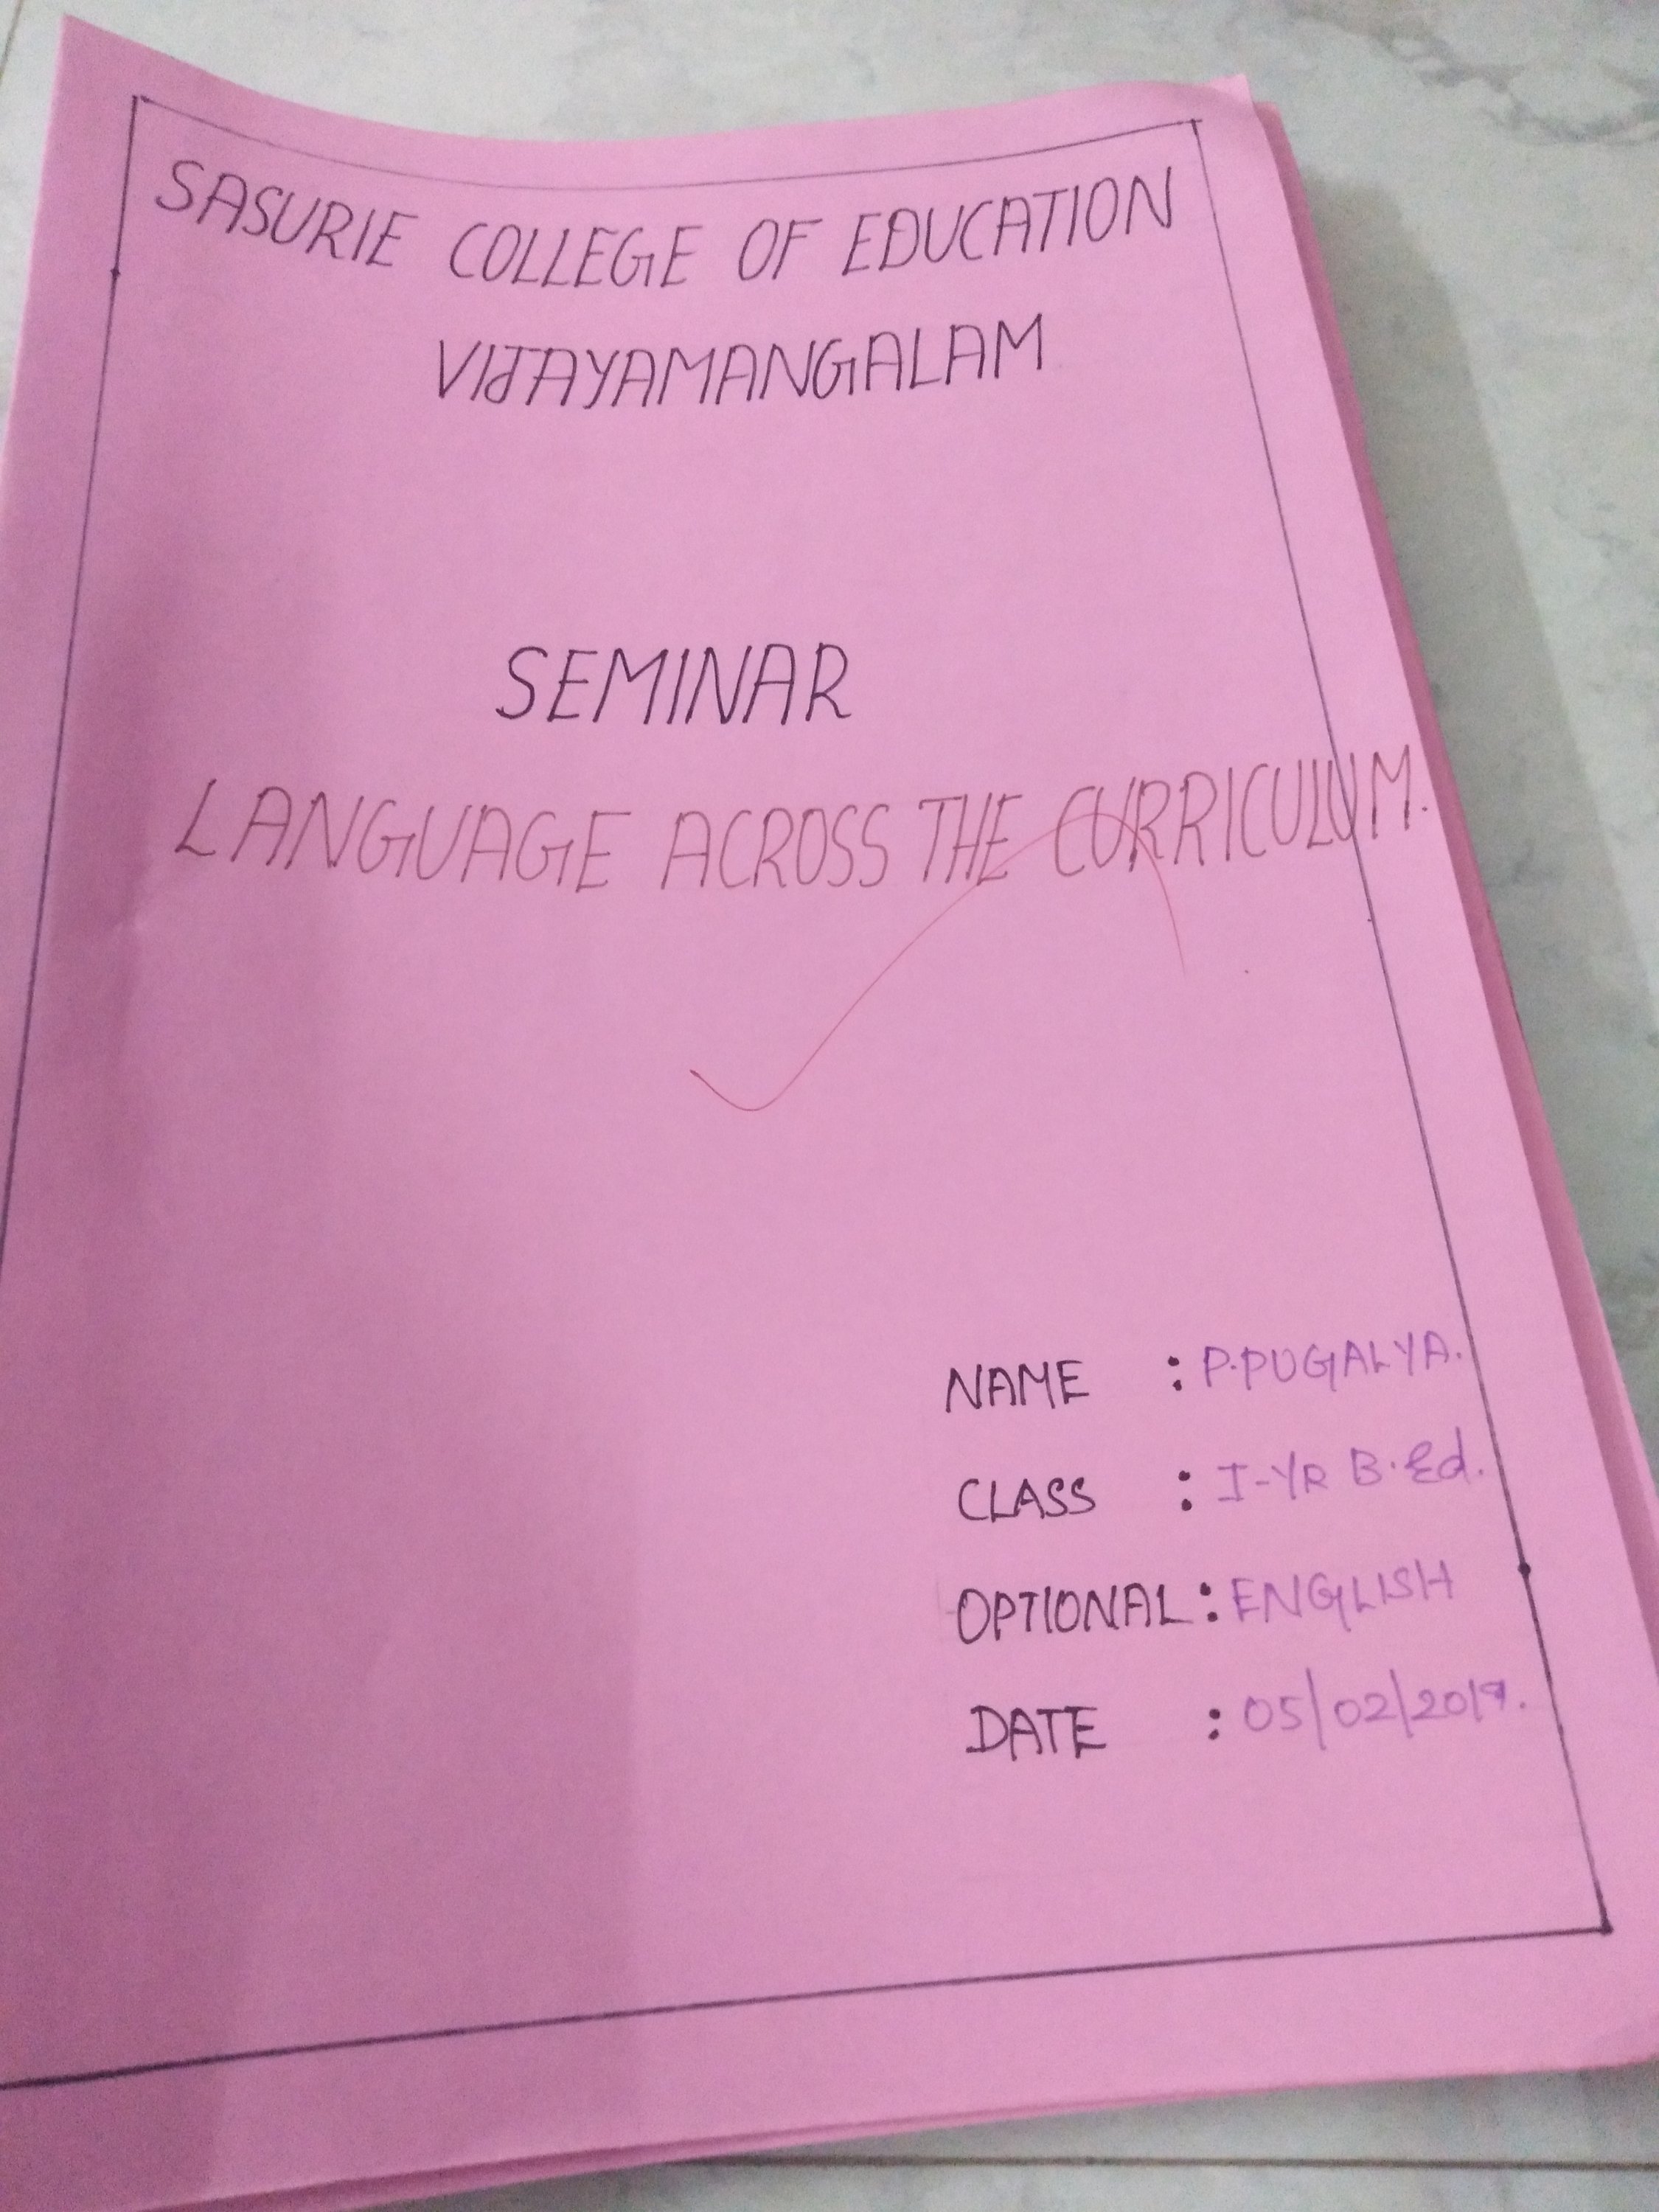 SASURIE COLLEGE OF EDUCATION
VIJAYAMANGALAM
SEMINAR
LANGUAGE ACROSS THE CURRICULUM.
NAME : P.PUGALYA.
CLASS : I-YR B.Ed.
OPTIONAL : ENGLISH
DATE : 05/02/2019.